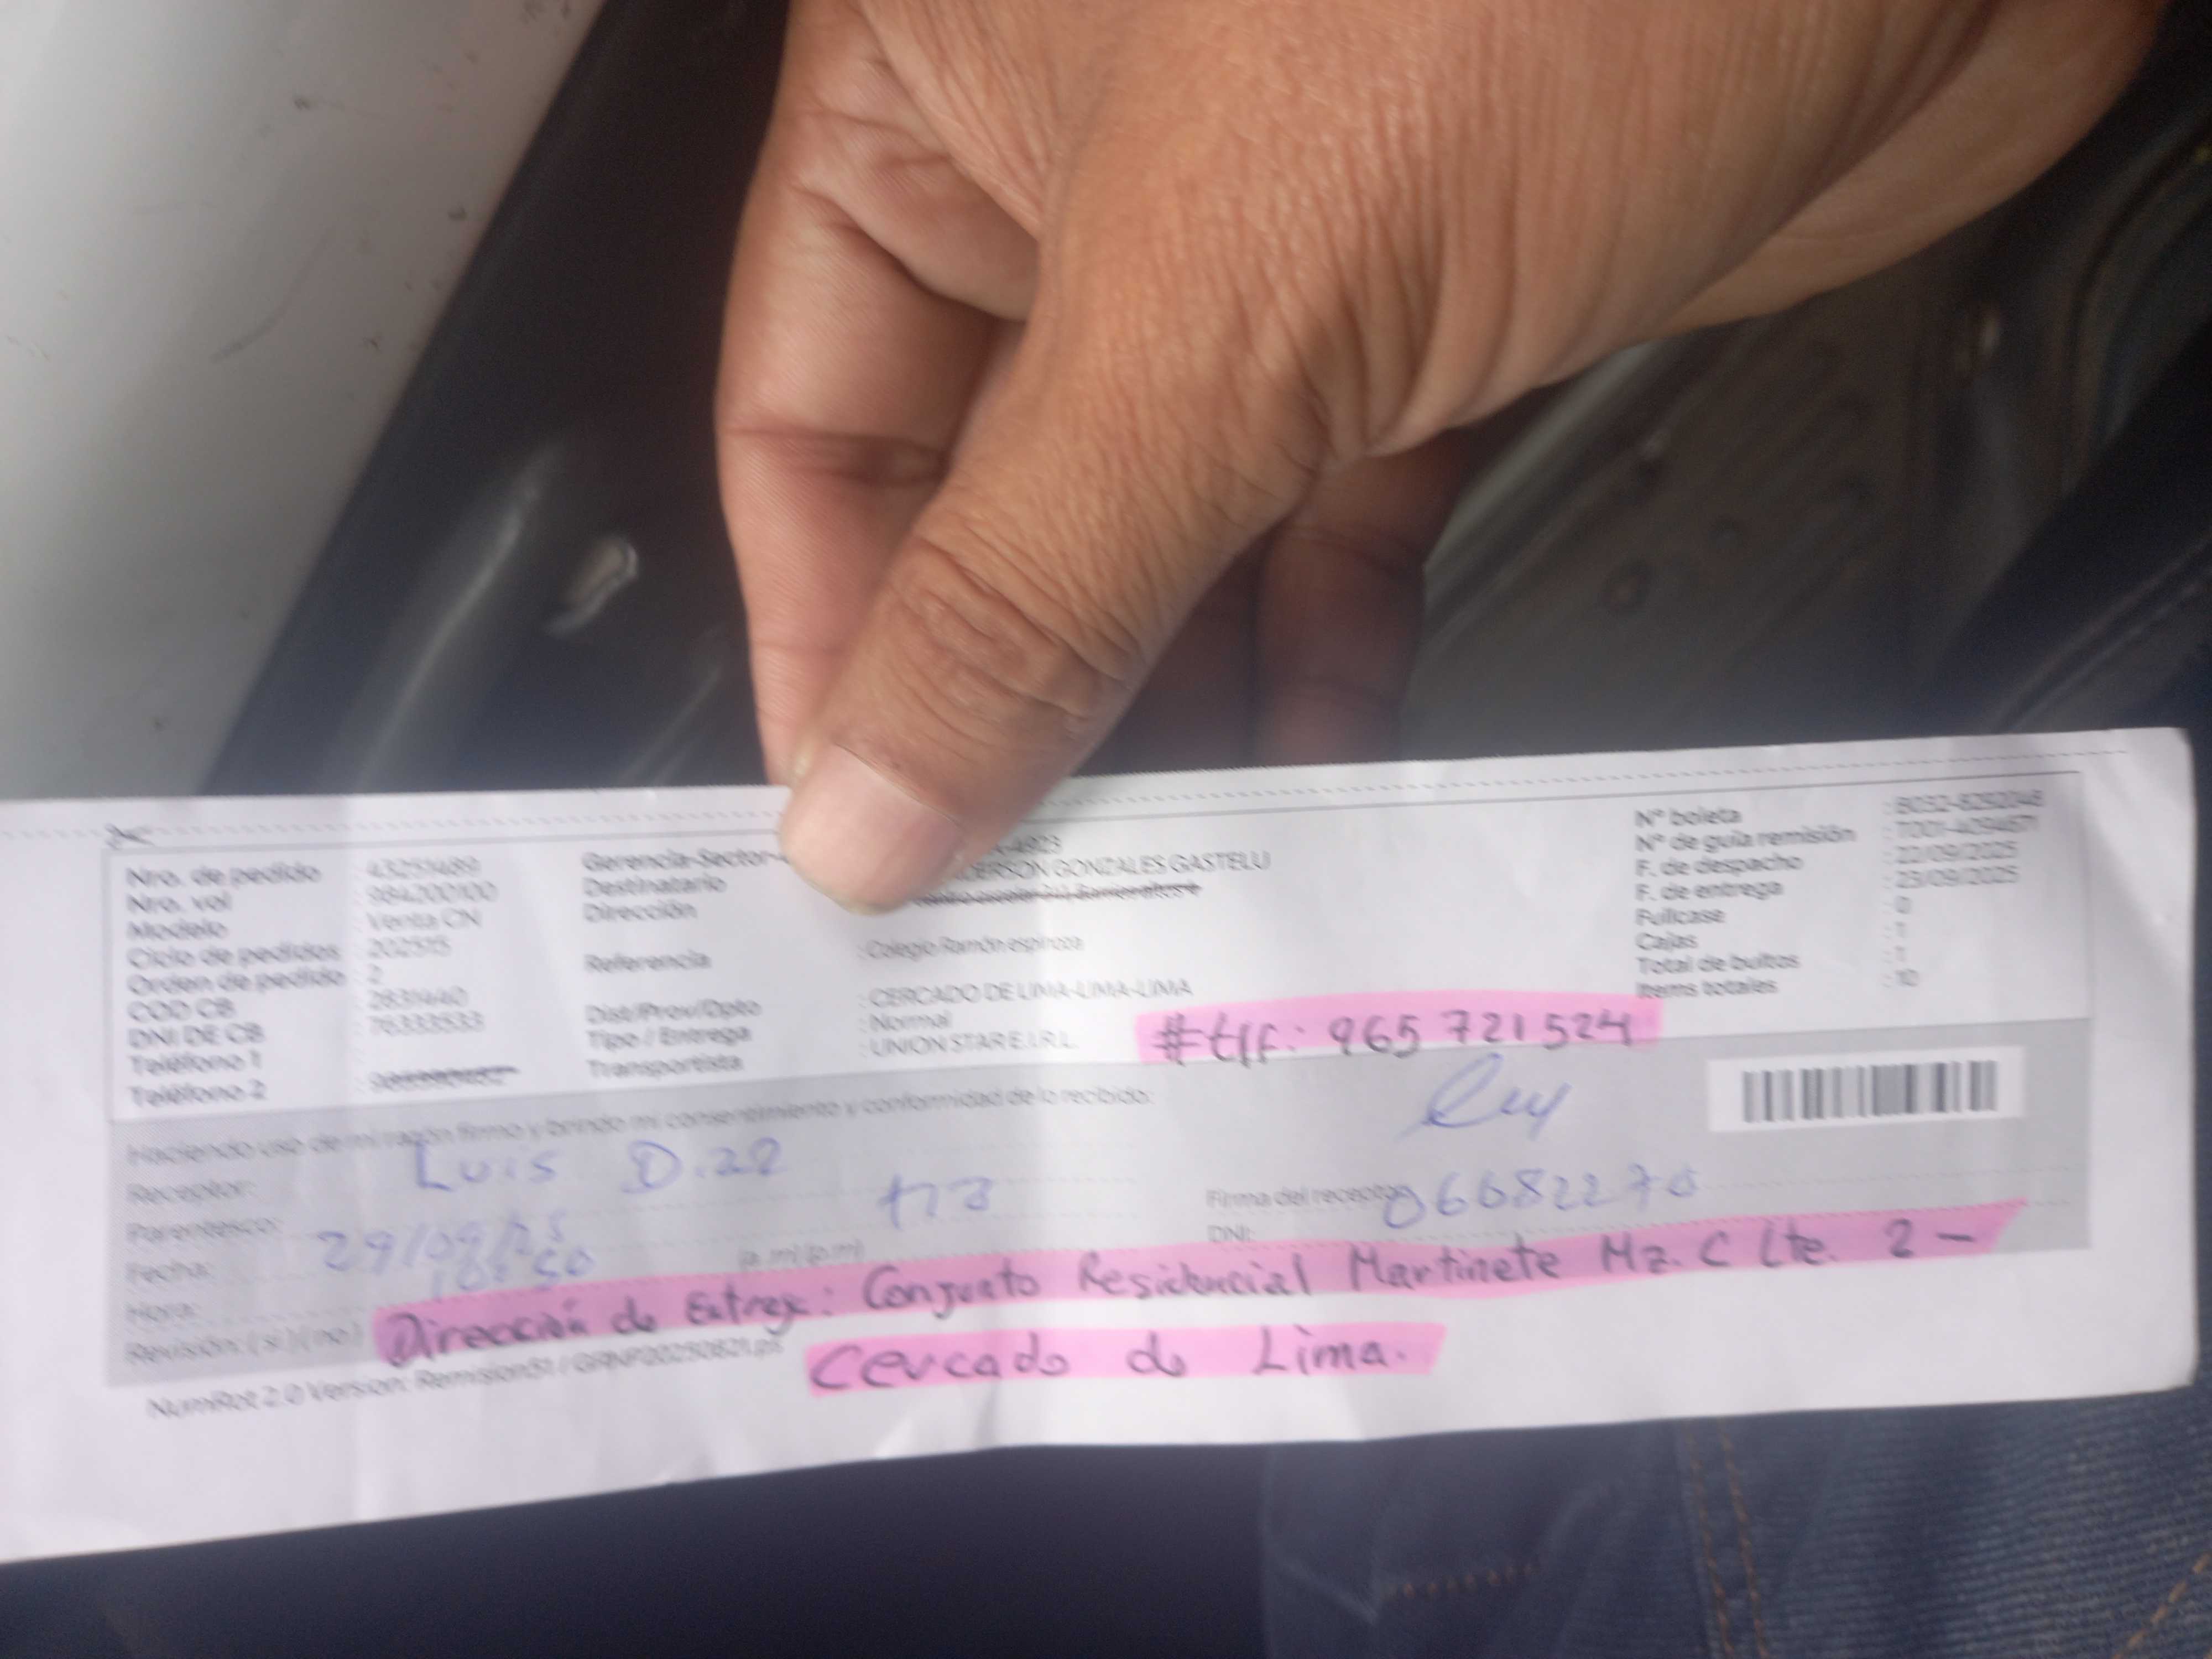 Nro. de pedido : 43251489
Nro. vol : 984200100
Modelo : Venta CN
Ciclo de pedidos : 202515
Orden de pedido : 2
COD CB : 2831440
DNI DE CB : 76333533
Teléfono 1
Teléfono 2
Gerencia-Sector-
Destinatario ERSON GONZALES GASTELU
Dirección
Referencia : Colegio Ramón espinoza
Dist/Prov/Dpto : CERCADO DE LIMA-LIMA-LIMA
Tipo / Entrega : Normal
Transportista : UNION STAR E.I.R.L.
N° boleta : B032-8292048
N° de guía remisión : T001-4094671
F. de despacho : 22/09/2025
F. de entrega : 23/09/2025
Fullcase : 0
Cajas : 1
Total de bultos : 1
Items totales : 10
#tlf: 965 721 524
Haciendo uso de mi razón firmo y brindo mi consentimiento y conformidad de lo recibido:
Receptor: Luis
Parentesco:
Fecha: 29/09/25
Hora: 10:50 (a.m) (p.m)
Revisión: ( si ) ( no )
Firma del receptor:
DNI: 06682270
Dirección de Entrega: Conjunto Residencial Martinete Mz. C Lte. 2 -
Cercado de Lima.
NumRot 2.0 Version: